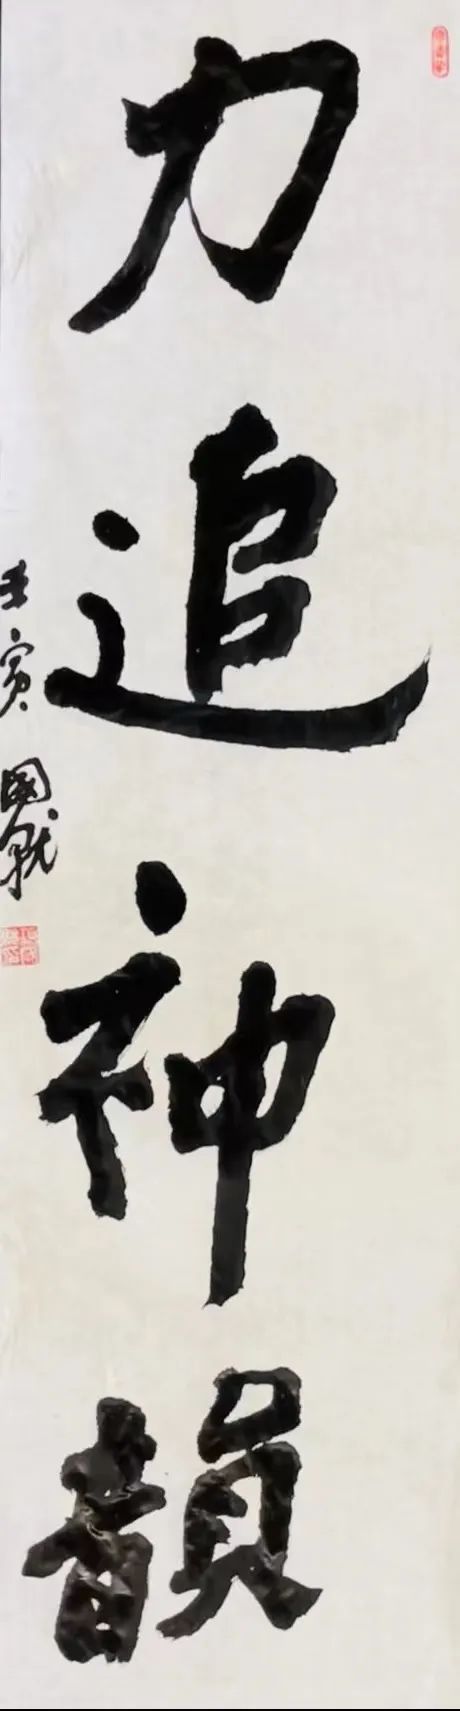 力追神韻
壬寅 國戰